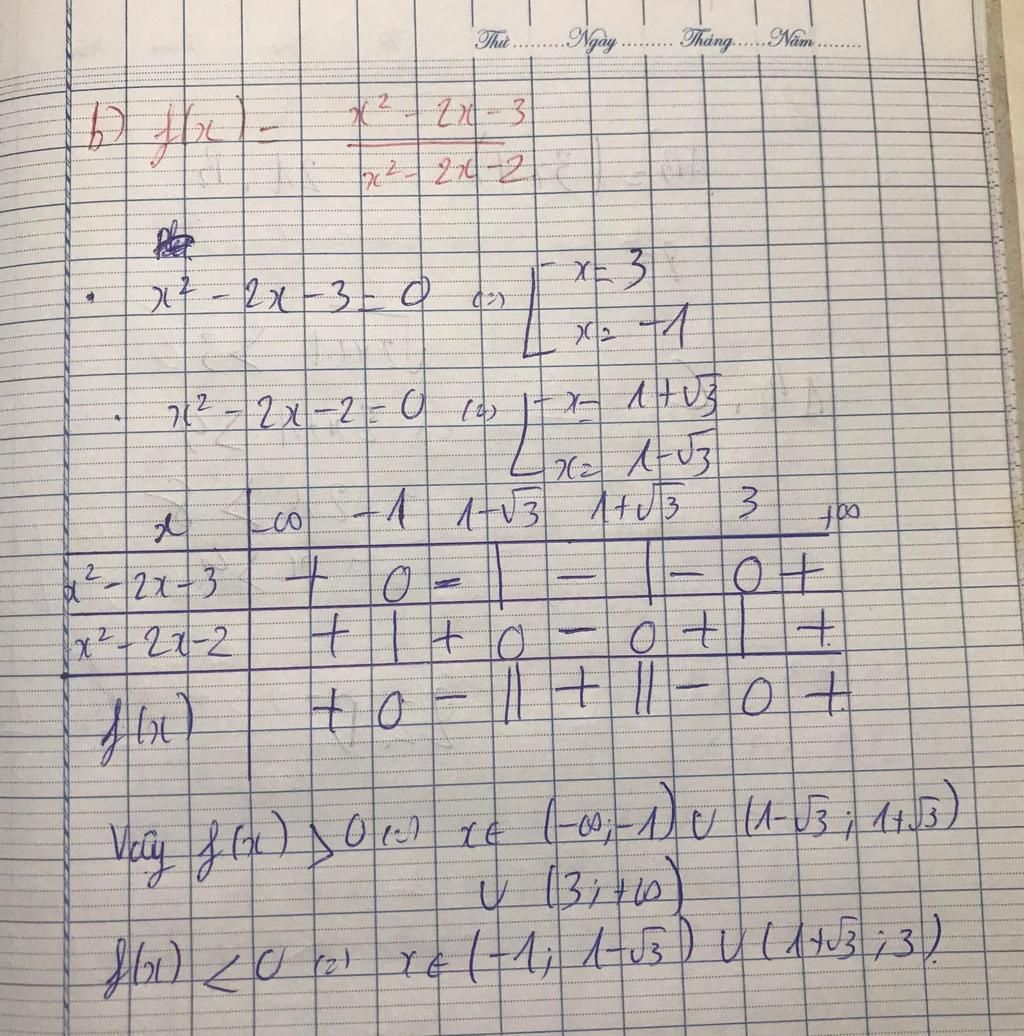 Thứ.........Ngày.........Tháng......Năm........
b) f(x) = x² - 2x - 3
x² - 2x - 2
· x² - 2x - 3 = 0 (=) [ x = 3
x = -1
· x² - 2x - 2 = 0 (=) [ x = 1+√3
x = 1-√3
x -∞ -1 1-√3 1+√3 3 +∞
x² - 2x - 3 + 0 - | - | - 0 +
x² - 2x - 2 + | + 0 - 0 + | +
f(x) + 0 - || + || - 0 +
Vậy f(x) > 0 (=) x ∈ (-∞; -1) ∪ (1-√3 ; 1+√3)
∪ (3; +∞)
f(x) < 0 (=) x ∈ (-1; 1-√3) ∪ (1+√3 ; 3).